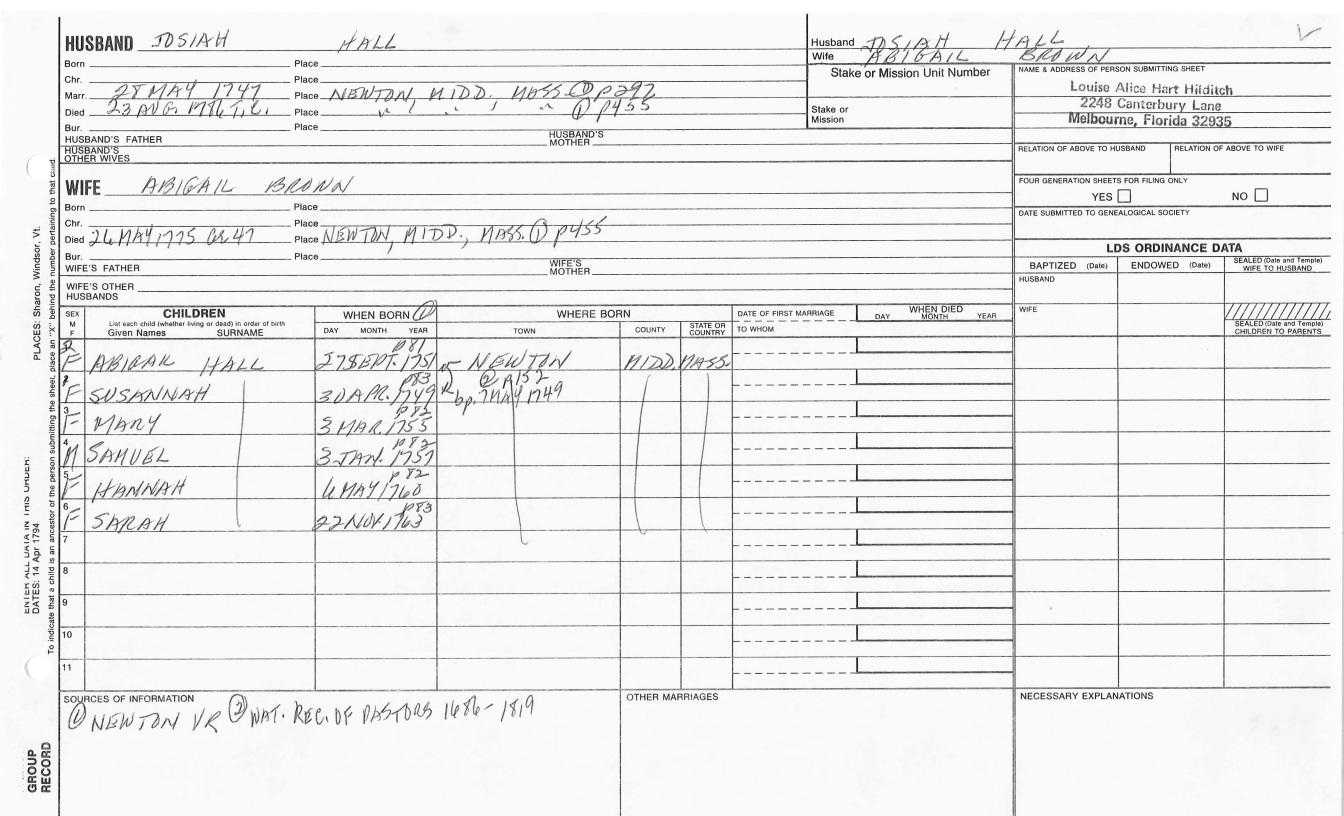 HUSBAND JOSIAH HALL
Born Place
Chr. Place
Marr. 28 MAY 1747 Place NEWTON, MIDD. MASS. ① p292
Died 23 AUG. 1786 Place " " " ① p455
Bur. Place
HUSBAND'S FATHER HUSBAND'S MOTHER
HUSBAND'S OTHER WIVES
WIFE ABIGAIL BROWN
Born Place
Chr. Place
Died 26 MAY 1775 Place NEWTON, MIDD., MASS. ① p455
Bur. Place
WIFE'S FATHER WIFE'S MOTHER
WIFE'S OTHER HUSBANDS
Husband JOSIAH HALL
Wife ABIGAIL BROWN
Stake or Mission Unit Number
Stake or Mission
NAME & ADDRESS OF PERSON SUBMITTING SHEET
Louise Alice Hart Hilditch
2248 Canterbury Lane
Melbourne, Florida 32935
RELATION OF ABOVE TO HUSBAND RELATION OF ABOVE TO WIFE
FOUR GENERATION SHEETS FOR FILING ONLY
YES NO
DATE SUBMITTED TO GENEALOGICAL SOCIETY
LDS ORDINANCE DATA
BAPTIZED (Date) ENDOWED (Date) SEALED (Date and Temple) WIFE TO HUSBAND
HUSBAND
WIFE
SEALED (Date and Temple) CHILDREN TO PARENTS
SEX M F CHILDREN WHEN BORN ① WHERE BORN DATE OF FIRST MARRIAGE WHEN DIED
List each child (whether living or dead) in order of birth
Given Names SURNAME DAY MONTH YEAR TOWN COUNTY STATE OR COUNTRY TO WHOM DAY MONTH YEAR
p81
F ABIGAIL HALL 27 SEPT. 1751 NEWTON MIDD. MASS.
p83 ② p152
F SUSANNAH 30 APR. 1749 bp. 7 MAY 1749
p82
3 F MARY 3 MAR. 1755
p82
4 M SAMUEL 3 JAN. 1757
p82
5 F HANNAH 6 MAY 1760
p83
6 F SARAH 22 NOV. 1763
7
8
9
10
11
SOURCES OF INFORMATION
① NEWTON VR ② WAT. REC. OF PASTORS 1686-1819
OTHER MARRIAGES
NECESSARY EXPLANATIONS
PLACES: Sharon, Windsor, Vt.
ENTER ALL DATA IN THIS ORDER:
DATES: 14 Apr 1794
To indicate that a child is an ancestor of the person submitting the sheet, place an "X" behind the number pertaining to that child.
GROUP RECORD